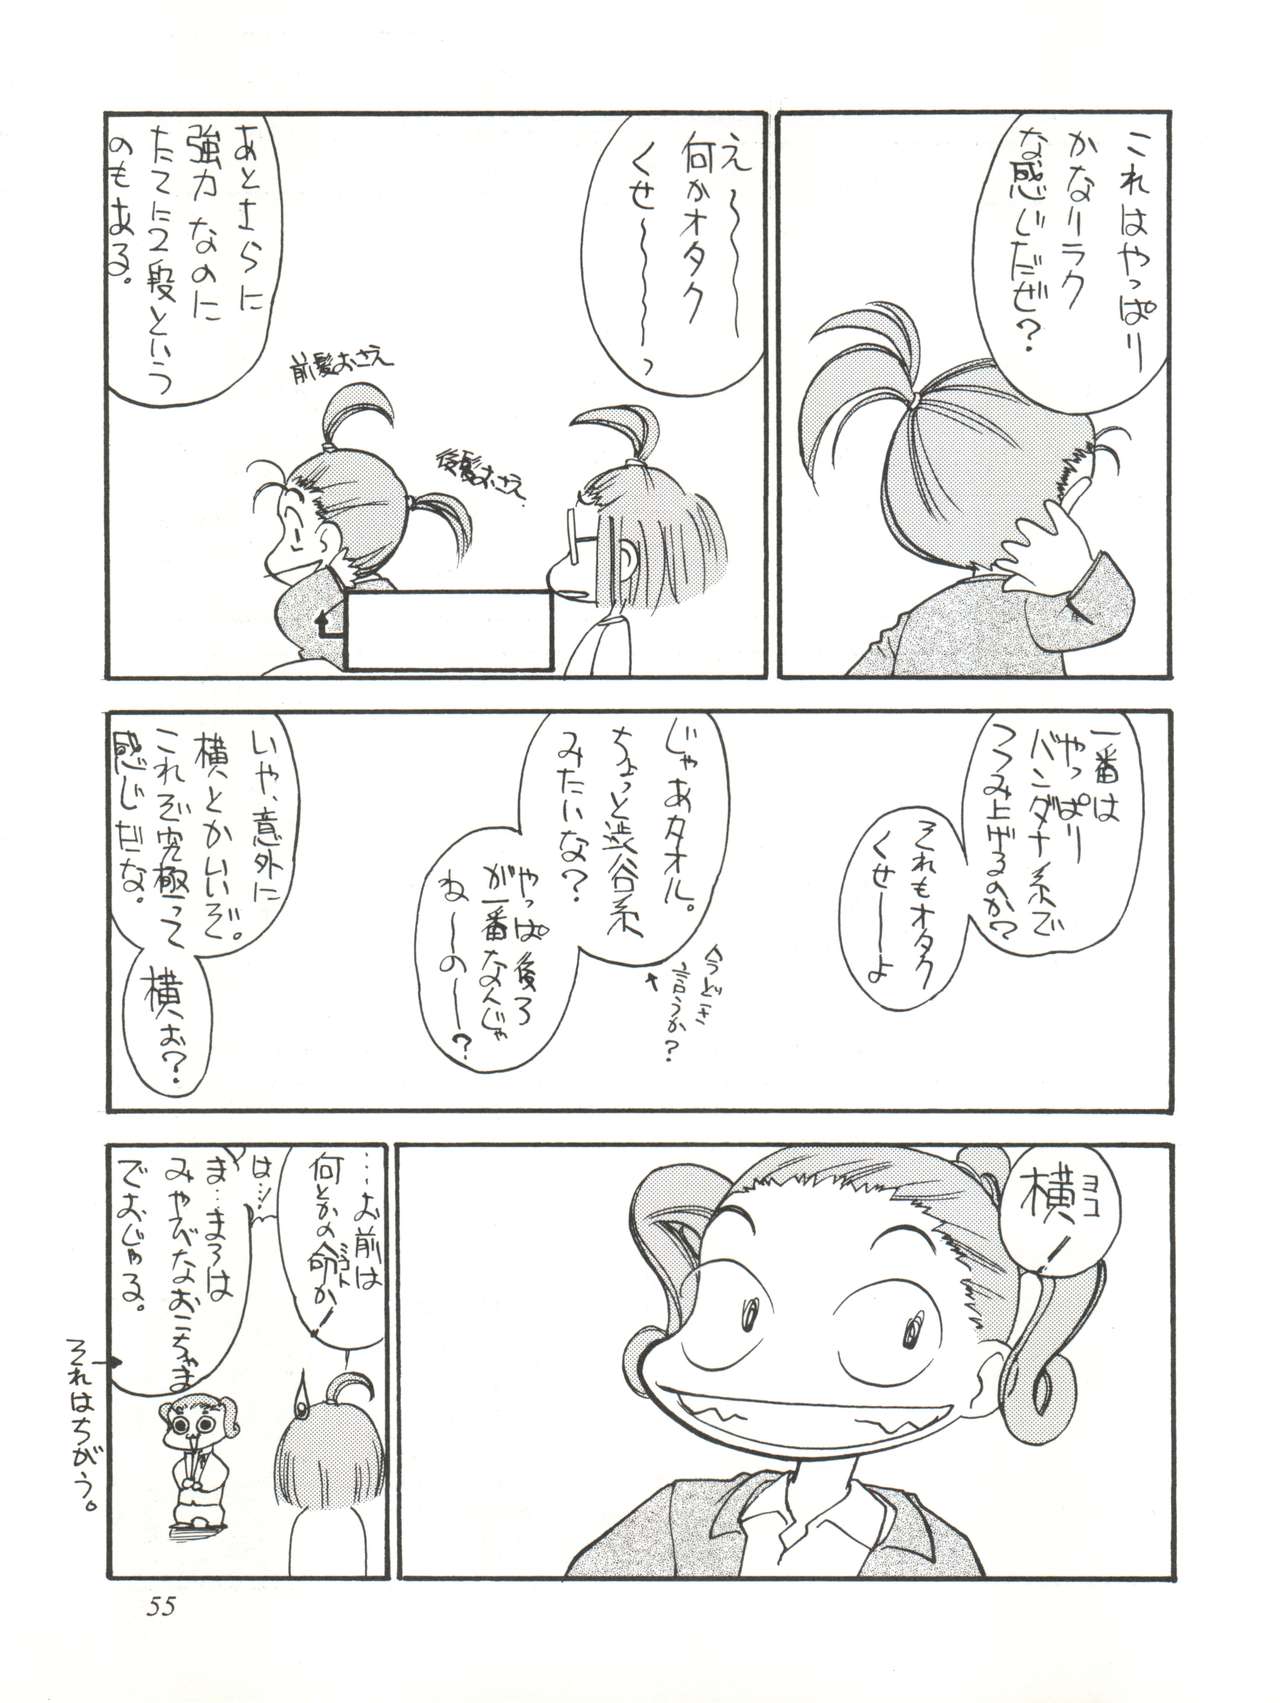 これはやっぱり
かなりラク
な感じだぜ?
え～～～
何かオタク
くせ～～～っ
あとさらに
強力なのに
たてに2段という
のもある。
前髪おさえ
後髪おさえ
一番は
やっぱり
バンダナ系で
つつみ上げるのか?
それもオタク
くせ～～よ
じゃあタオル。
ちょっと渋谷系
みたいな?
今どき
言うか?
やっぱ後ろ
が一番なんじゃ
ね～の～?
いや、意外に
横とかいいぞ。
これぞ究極って
感じだな。
横ぉ?
横
ヨコ
…お前は
何とかの命か
ミコト
は…!
ま…まろは
みやびなおこちゃま
でおじゃる。
それはちがう。
55